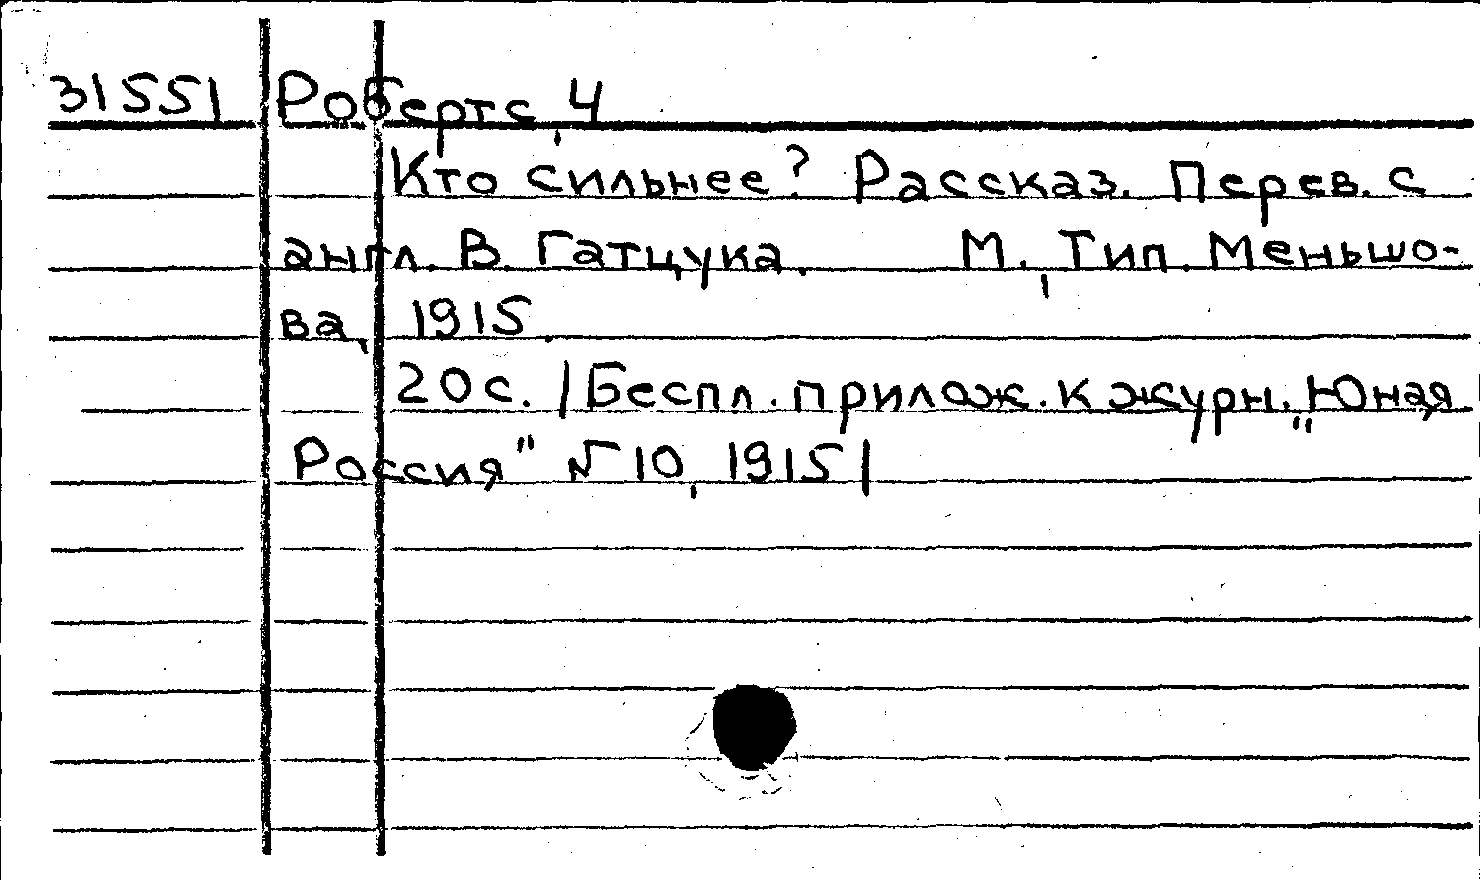 31551 Робертс, Ч
Кто сильнее? Рассказ. Перев. с
англ. В. Гатцука. М., Тип. Меньшо-
ва, 1915.
20 с. /Беспл. прилож. к журн. „Юная
Россия" № 10, 1915/